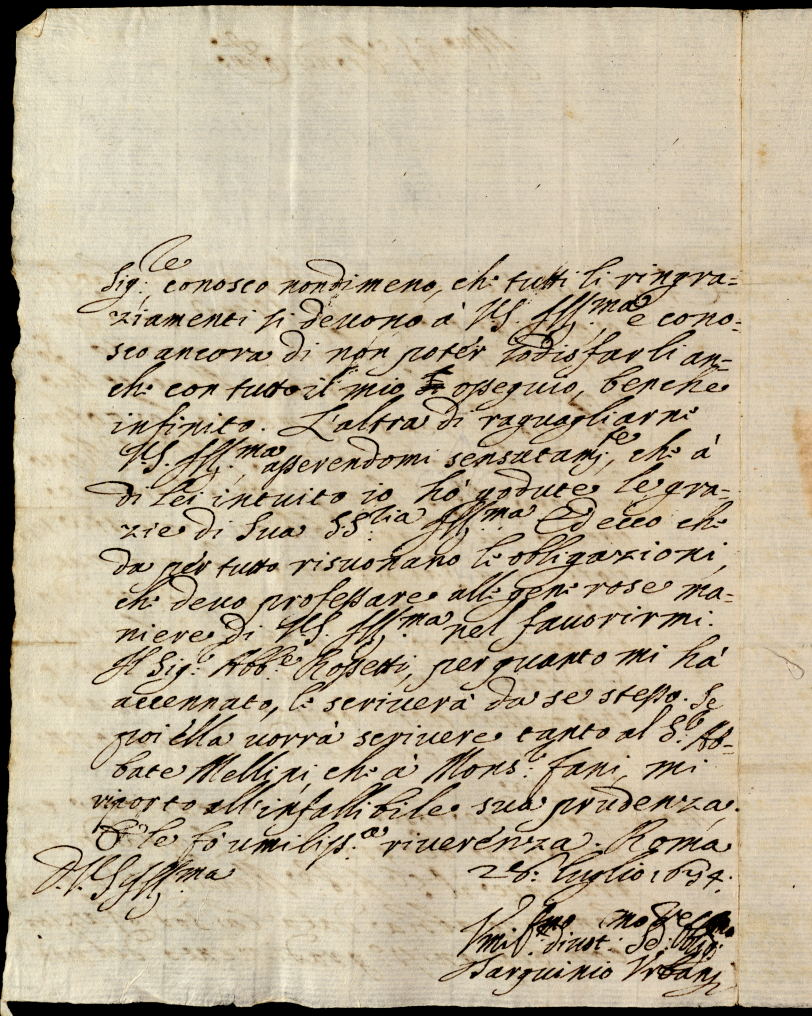 Sig.re conosco nondimeno, che tutti li ringra=
ziamenti si deuono à VS. Ill.ma e cono=
sco ancora di non potér sodisfarli an=
che con tutto il mio ossequio, benche
infinito. L'altra di raguagliarne
VS. Ill.ma asserendomi sensatam.te, che à
di lei intuito io hò godute le gra=
zie di Sua S.ria Ill.ma Ed ecco che
da pér tutto risuonano le obligazioni,
che deuo professare alle generose ma=
niere di VS. Ill.ma nel fauorirmi.
Il Sig.r Abb.e Rossetti, per quanto mi hà
accennato, le scriuerà da se stesso. Se
poi élla uorrà scriuere tanto al S.r Ab=
bate Mellini che à Mons.r Fani, mi
riporto all'infallibile sua prudenza.
E le fò umiliss.a riuerenza. Roma
D. VS Ill.ma 28: Luglio 1694:
Vmil.mo diuot.mo Se.re Oblig.mo
Tarquinio Vrbani